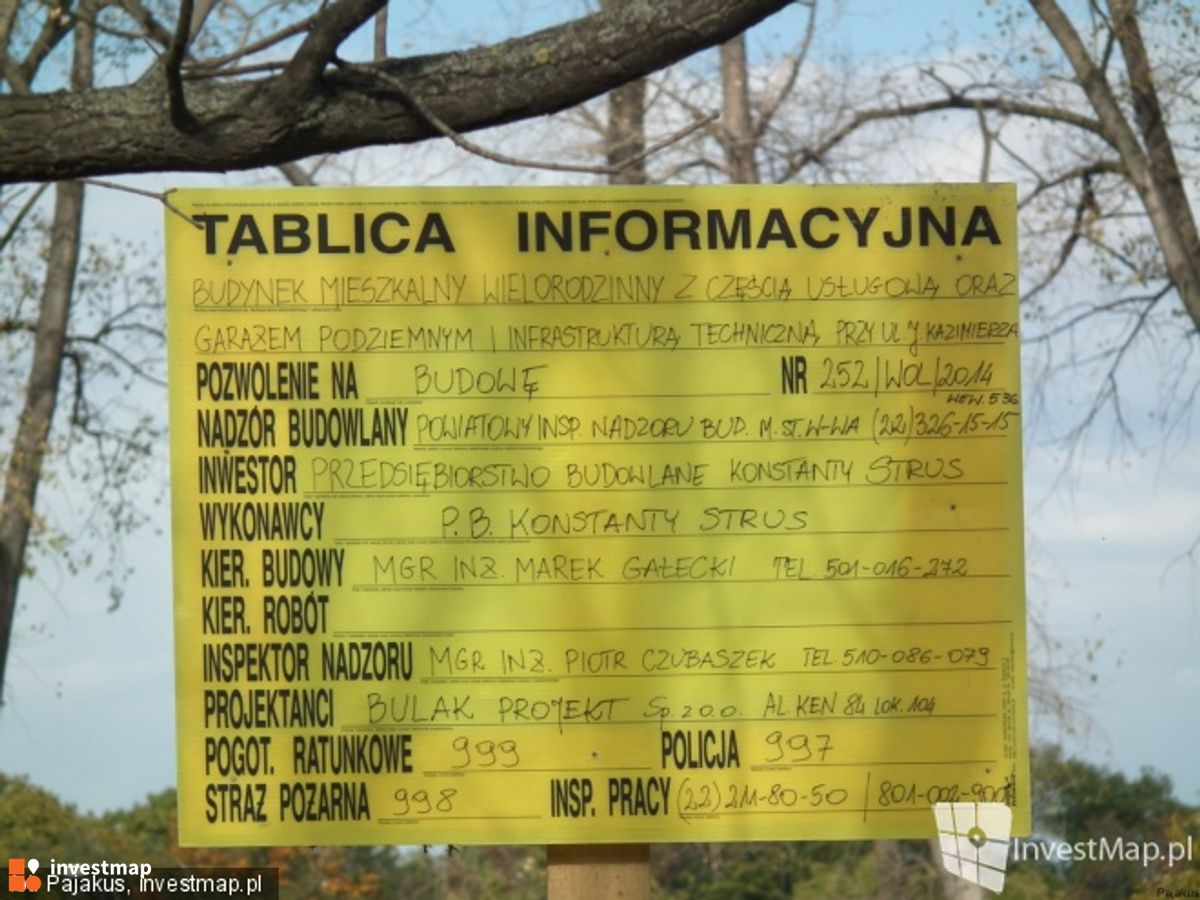 TABLICA INFORMACYJNA
BUDYNEK MIESZKALNY WIELORODZINNY Z CZĘŚCIĄ USŁUGOWĄ ORAZ
GARAŻEM PODZIEMNYM I INFRASTRUKTURĄ TECHNICZNĄ PRZY UL J. KAZIMIERZA
POZWOLENIE NA BUDOWĘ NR 252/WOL/2014
WEW. 536
NADZÓR BUDOWLANY POWIATOWY INSP. NADZORU BUD. M. ST. W-WA (22)326-15-15
INWESTOR PRZEDSIĘBIORSTWO BUDOWLANE KONSTANTY STRUS
WYKONAWCY P.B. KONSTANTY STRUS
KIER. BUDOWY MGR INŻ. MAREK GAŁECKI TEL. 501-016-272
KIER. ROBÓT
INSPEKTOR NADZORU MGR INŻ. PIOTR CZUBASZEK TEL. 510-086-079
PROJEKTANCI BULAK PROJEKT Sp. z o.o. AL. KEN 84 LOK. 104
POGOT. RATUNKOWE 999 POLICJA 997
STRAŻ POŻARNA 998 INSP. PRACY (22) 211-80-50 / 801-002-900
InvestMap.pl
investmap
Pajakus, investmap.pl
Pajakus